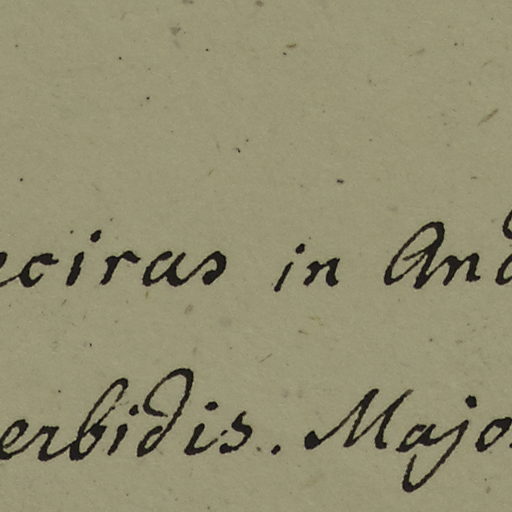 eciras in And
erbidis. Major